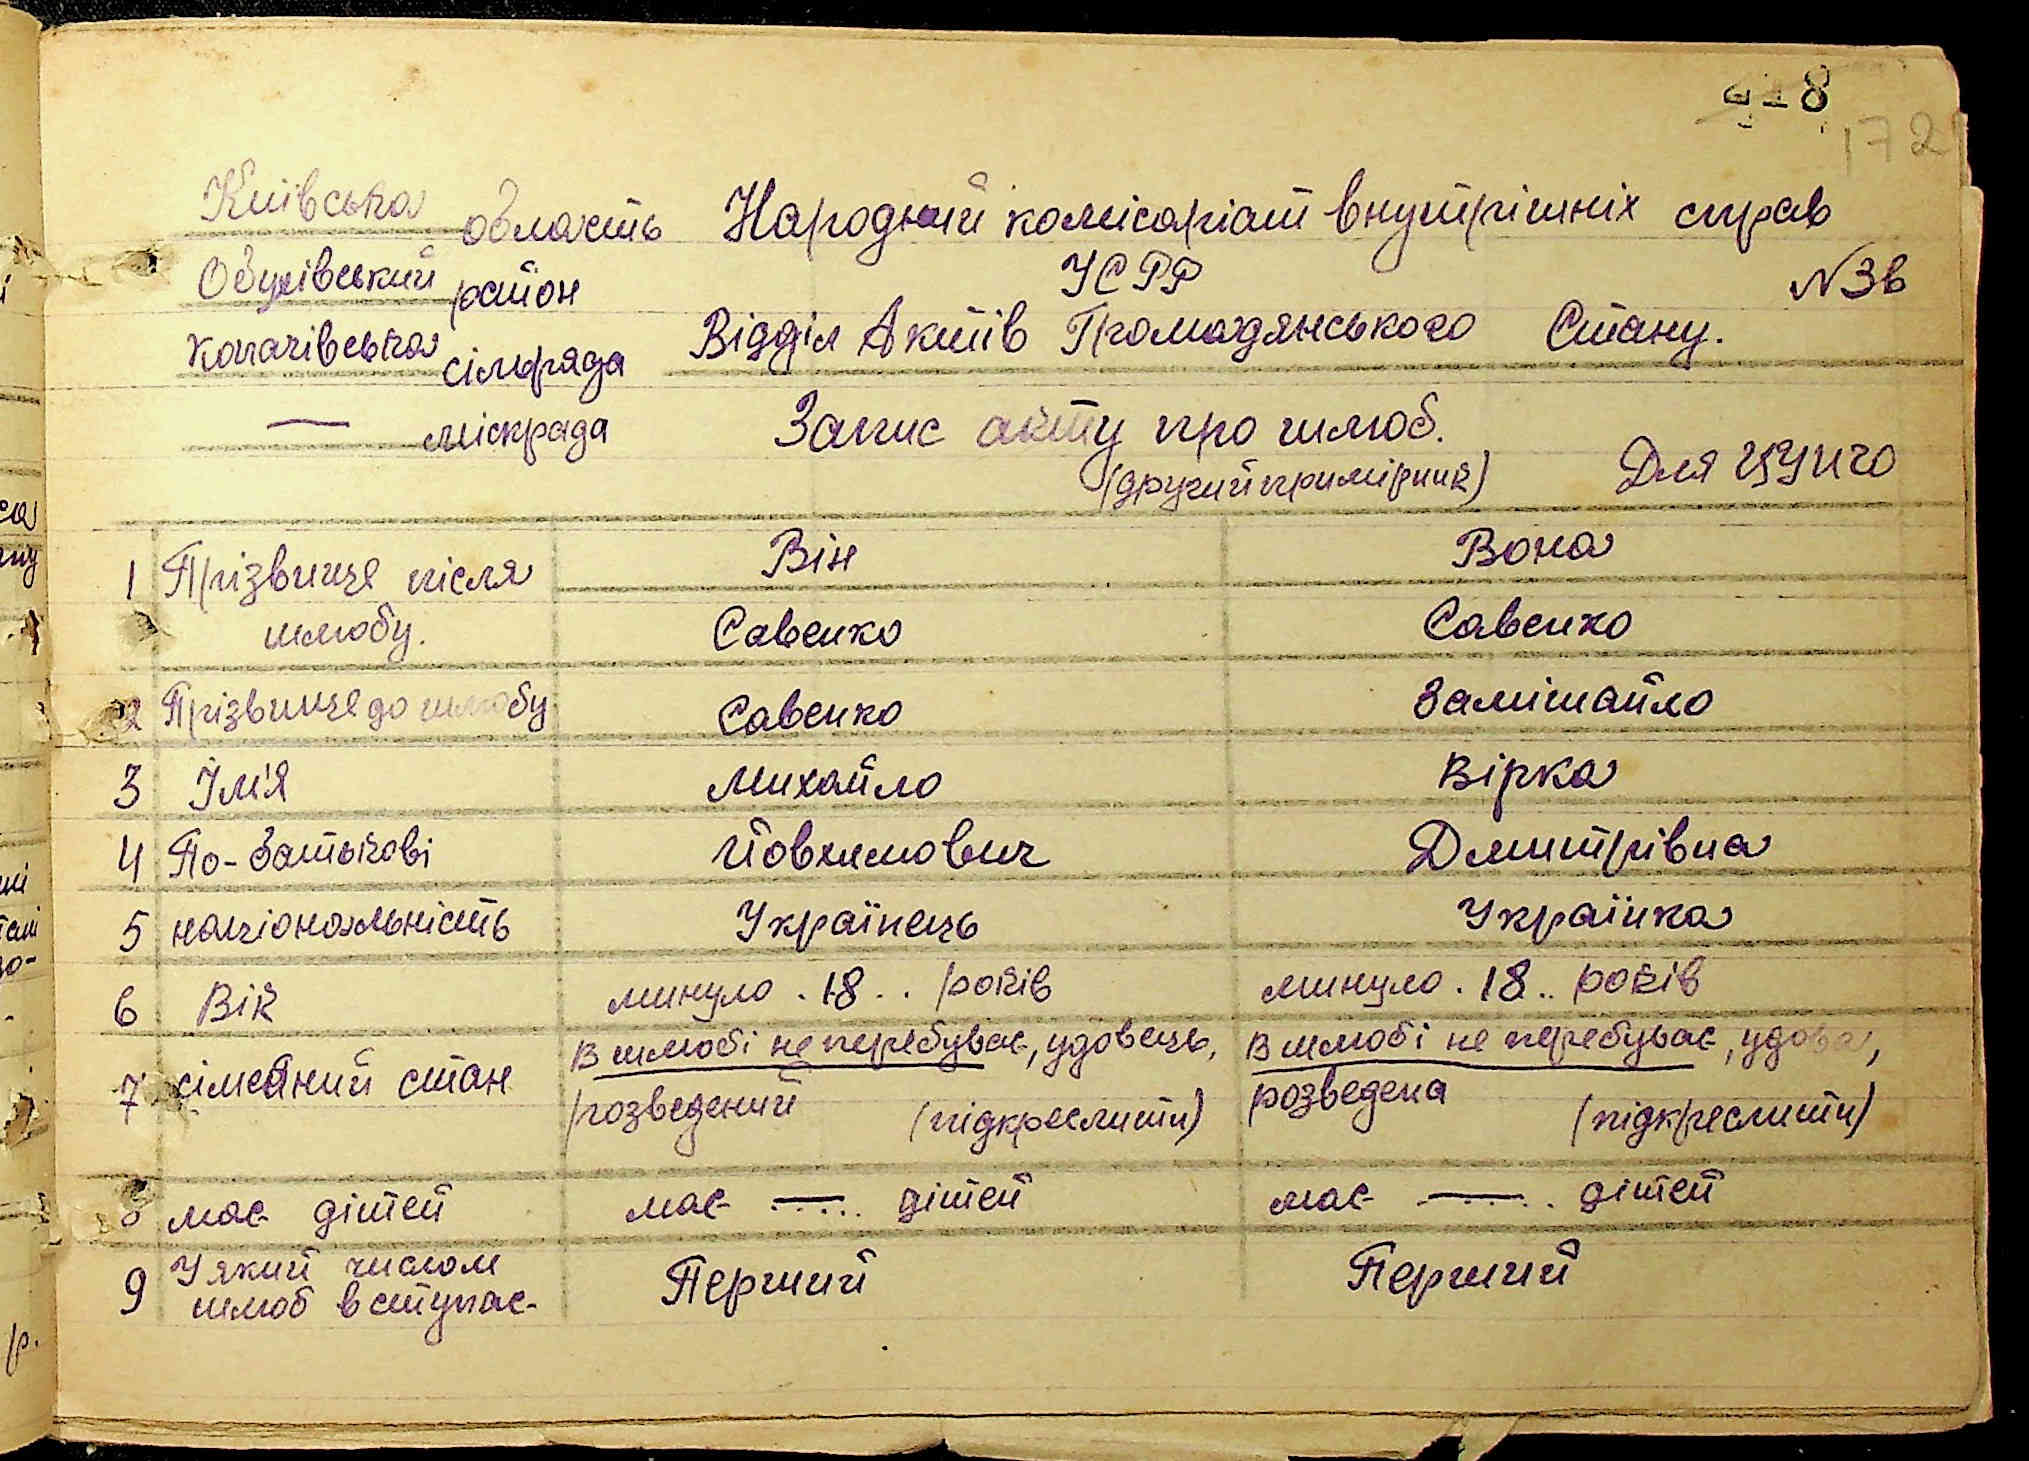 418
172
Київська область Народний комісаріат внутрішніх справ
Обухівський район УСРР №3в
Копачівська сільрада Відділ Актів Громадянського Стану.
— міскрада Запис акту про шлюб.
(другий примірник) Для ЦУНГО
Він Вона
1 Прізвище після
шлюбу. Савенко Савенко
2 Прізвище до шлюбу Савенко Замішайло
3 Ім'я Михайло Вірка
4 По-батькові Йовхимович Дмитрівна
5 національність Українець Українка
6 Вік минуло . 18 . . років минуло . 18 . . років
7 сімейний стан В шлюбі не перебуває, удовець, В шлюбі не перебуває, удова,
розведений (підкреслити) розведена (підкреслити)
8 має дітей має — дітей має — дітей
9 У який числом
шлюб вступає Перший Перший